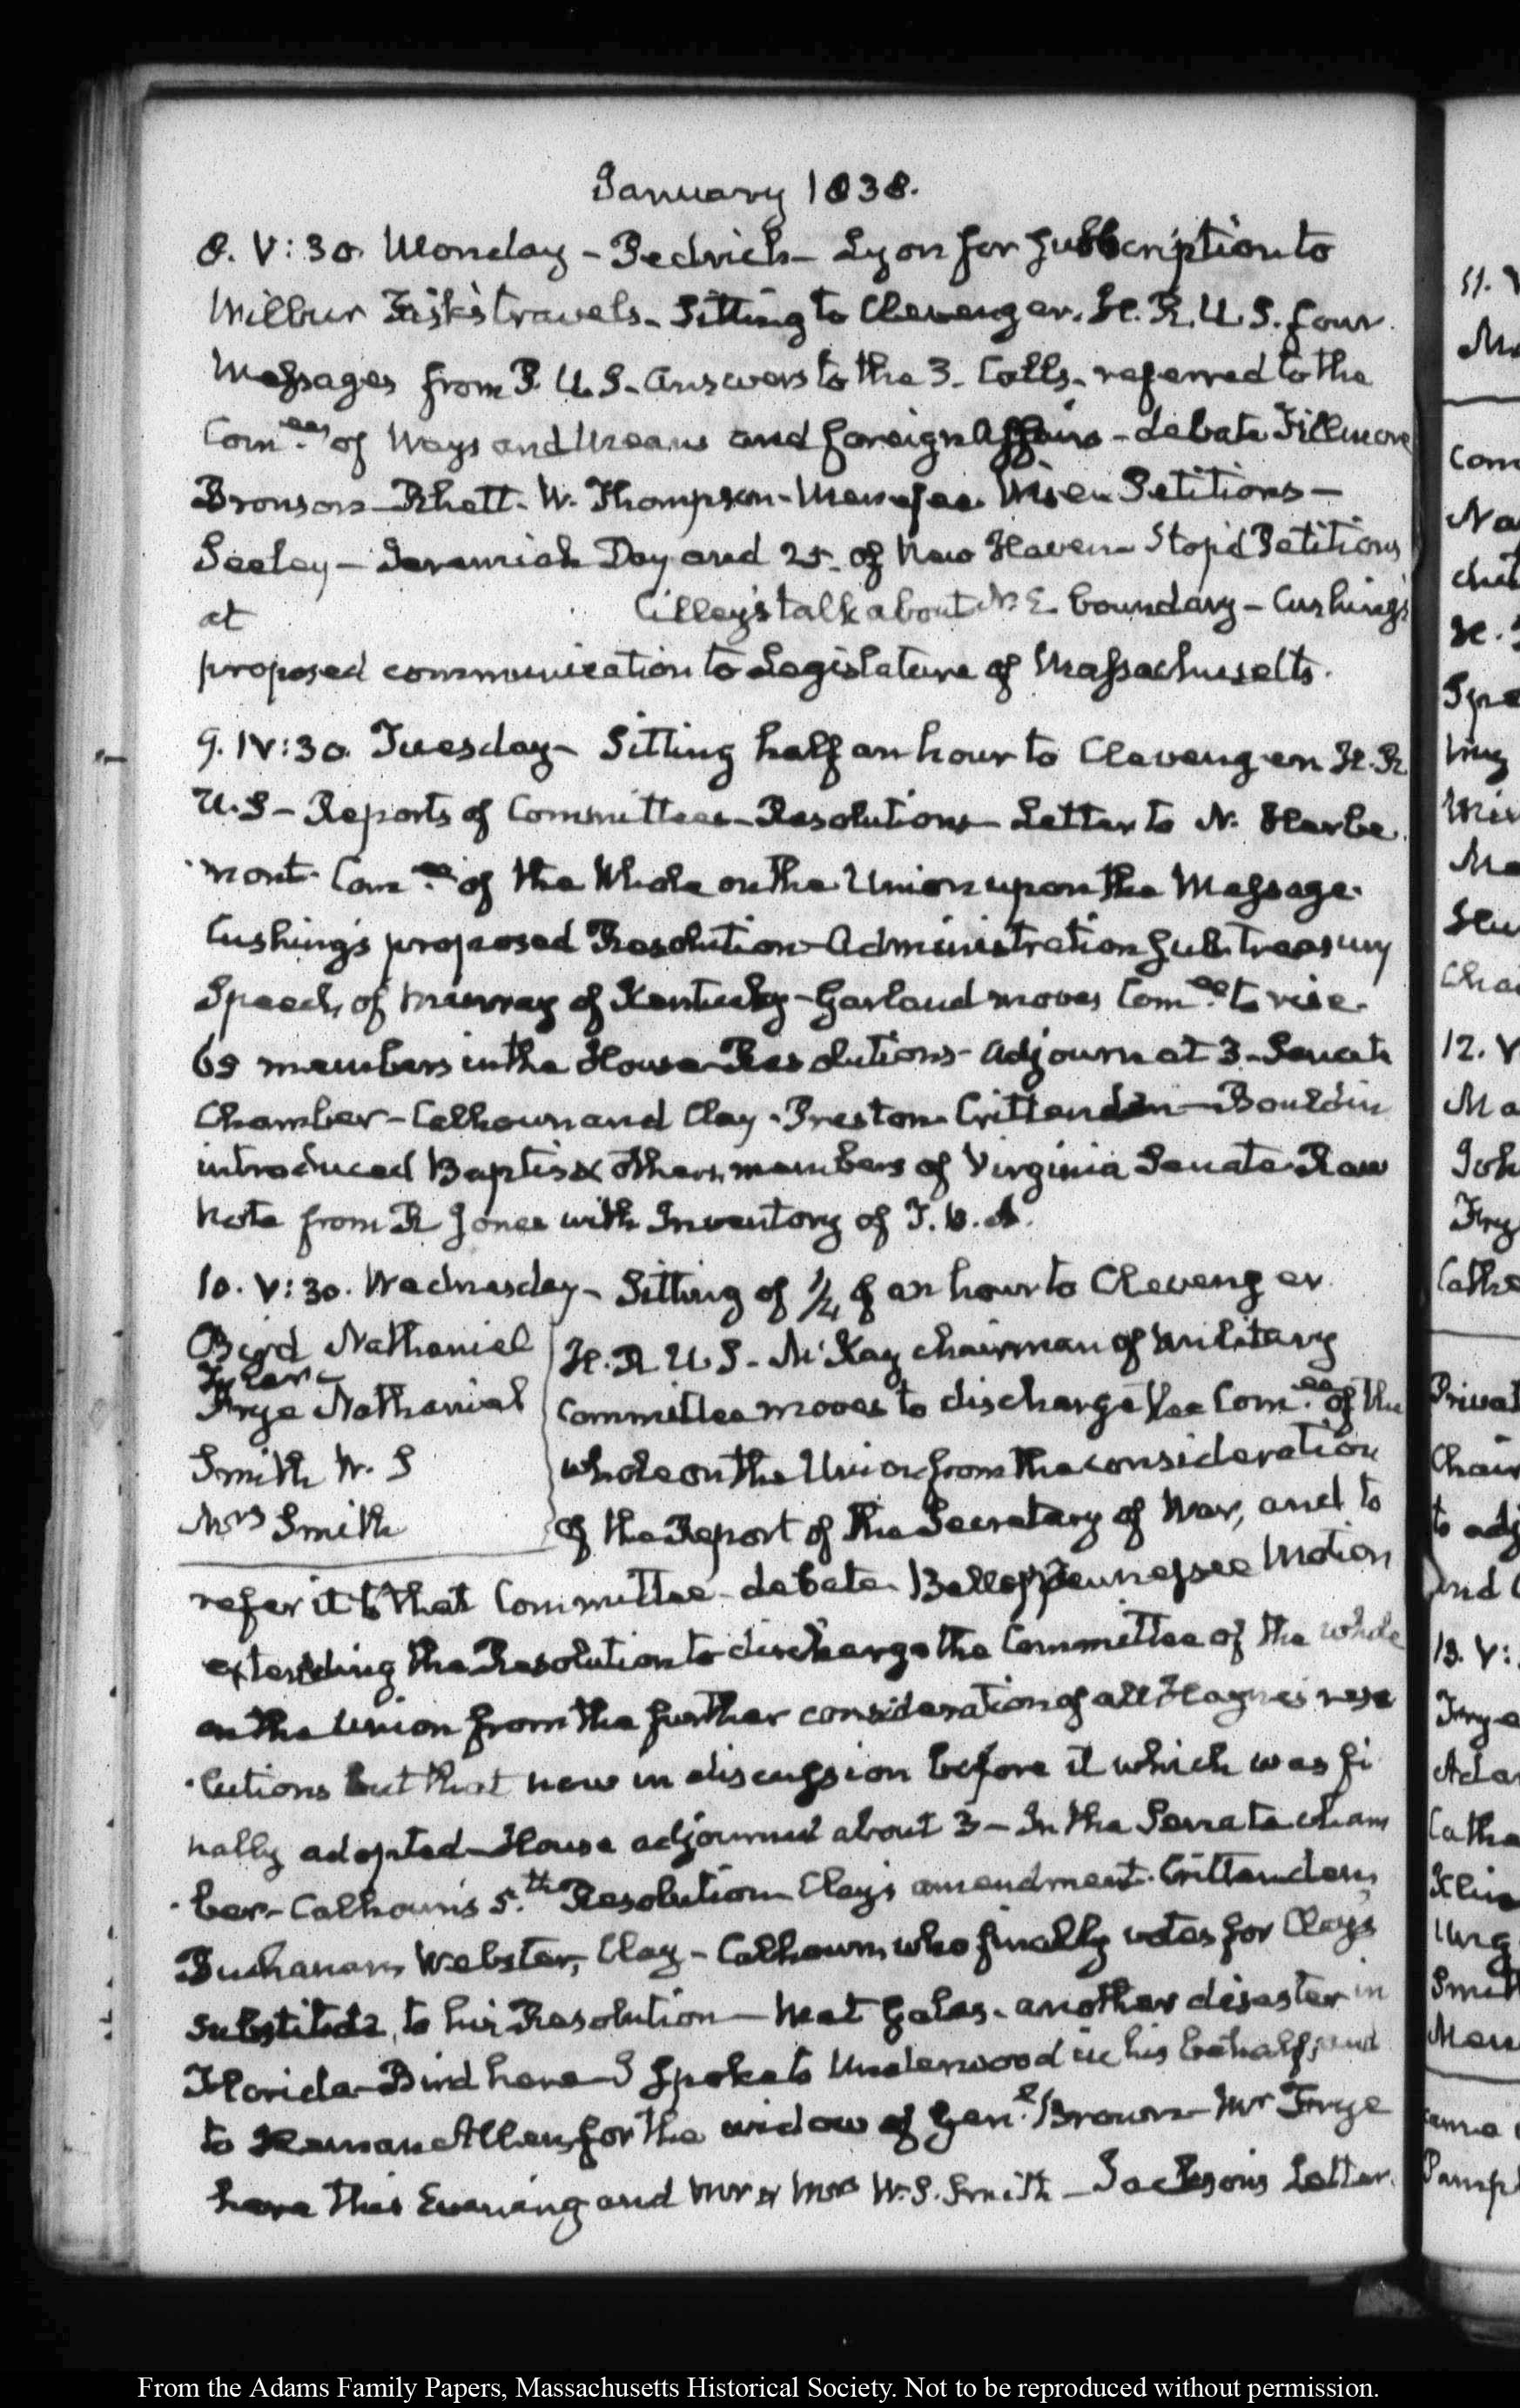 January 1838.
8. V:30. Monday – Pedrick – Lyon for subscription to
Wilbur Fisk's travels – Sitting to Clevenger. H. R. U. S. four
Messages from P. U. S. Answers to the 3. Calls – referred to the
Com.ees of Ways and Means and foreign Affairs – debate Fillmore
Bronson – Rhett – W. Thompson – Menefee. Wise. Petitions –
Seeley – Jeremiah Day and 25. of New Haven – Stop'd Petitions
at Cilley's talk about N. E. boundary – Cushing's
proposed communication to Legislature of Massachusetts.
9. IV:30. Tuesday – Sitting half an hour to Clevenger H. R
U. S – Reports of Committees – Resolutions – Letter to N. Herbe
mont – Com.ee of the Whole on the Union upon the Message.
Cushing's proposed Resolution – Administration Sub. treasury
Speech of Murray of Kentucky – Garland moves Com.ee to rise.
69 members in the House – Resolutions – adjourn at 3 – Senate
Chamber – Calhoun and Clay – Preston – Crittenden – Bouldin
introduced Baptist & others, members of Virginia Senate
Note from R Jones with Inventory of T. B. A.
10. V:30. Wednesday – Sitting of 1/4 of an hour to Clevenger
Bird Nathaniel
Frye Nathaniel
Smith W. S
Mrs Smith
H. R. U. S – McKay chairman of Military
Committee moves to discharge the Com.ee of the
whole on the Union from the consideration
of the Report of the Secretary of War, and to
refer it to that Committee – debate. Bell of Tennessee Motion
extending the Resolution to discharge the Committee of the whole
on the Union from the further consideration of all Haynes's reso
lutions but that now in discussion before it which was fi
nally adopted – House adjourned about 3 – In the Senate cham
ber – Calhoun's 5.th Resolution Clay's amendment. Crittenden,
Buchanan, Webster, Clay – Calhoun, who finally votes for Clay's
substitute, to his Resolution – Met Gales – another disaster in
Florida – Bird here – I spoke to Underwood in his behalf, and
to Heman Allen, for the widow of Gen.l Brown – Mr Frye
here this Evening and Mr & Mrs W. S. Smith – Jackson's Letter.
From the Adams Family Papers, Massachusetts Historical Society. Not to be reproduced without permission.